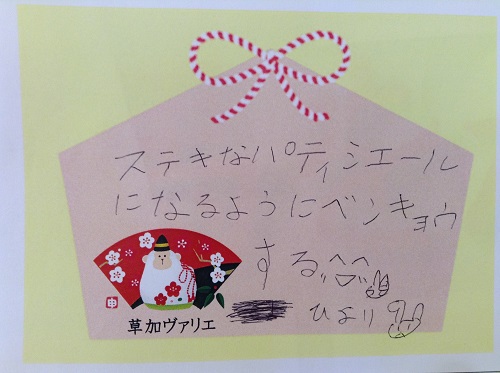 ステキなパティシエール
になるようにベンキョウ
する!!^^
ひより
草加ヴァリエ
申